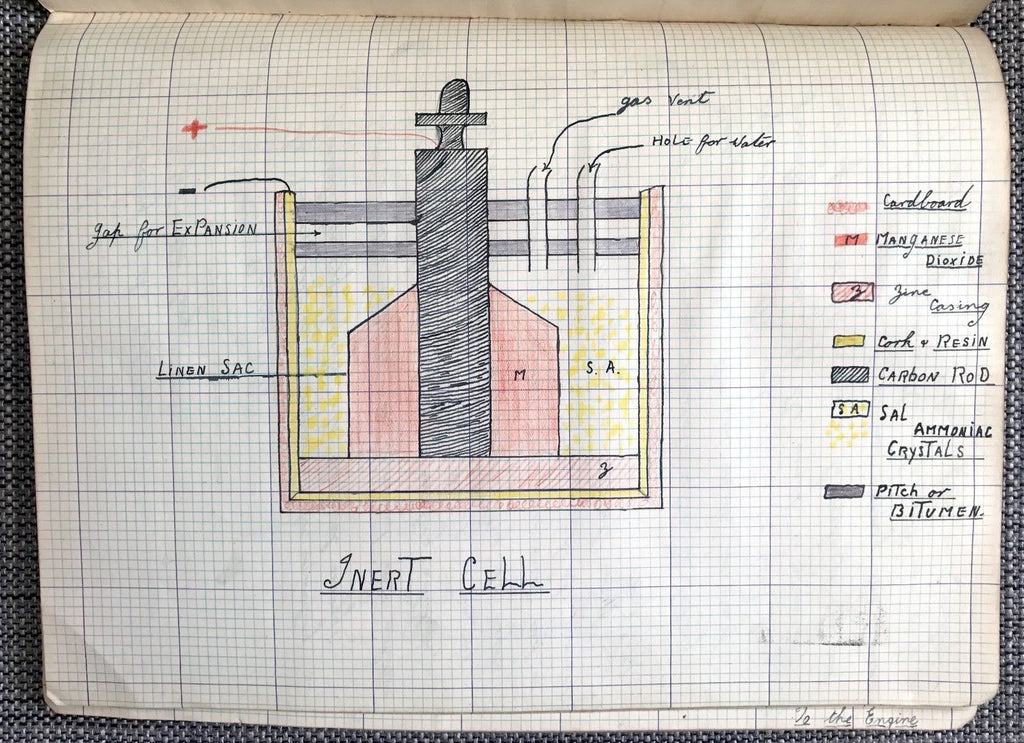 gas vent
Hole for water
+
-
gap for Expansion
Linen Sac
M
S.A.
z
Inert Cell
Cardboard
M Manganese
Dioxide
z Zinc
Casing
Cork & Resin
Carbon Rod
SA Sal
Ammoniac
Crystals
Pitch or
Bitumen.
the Engine